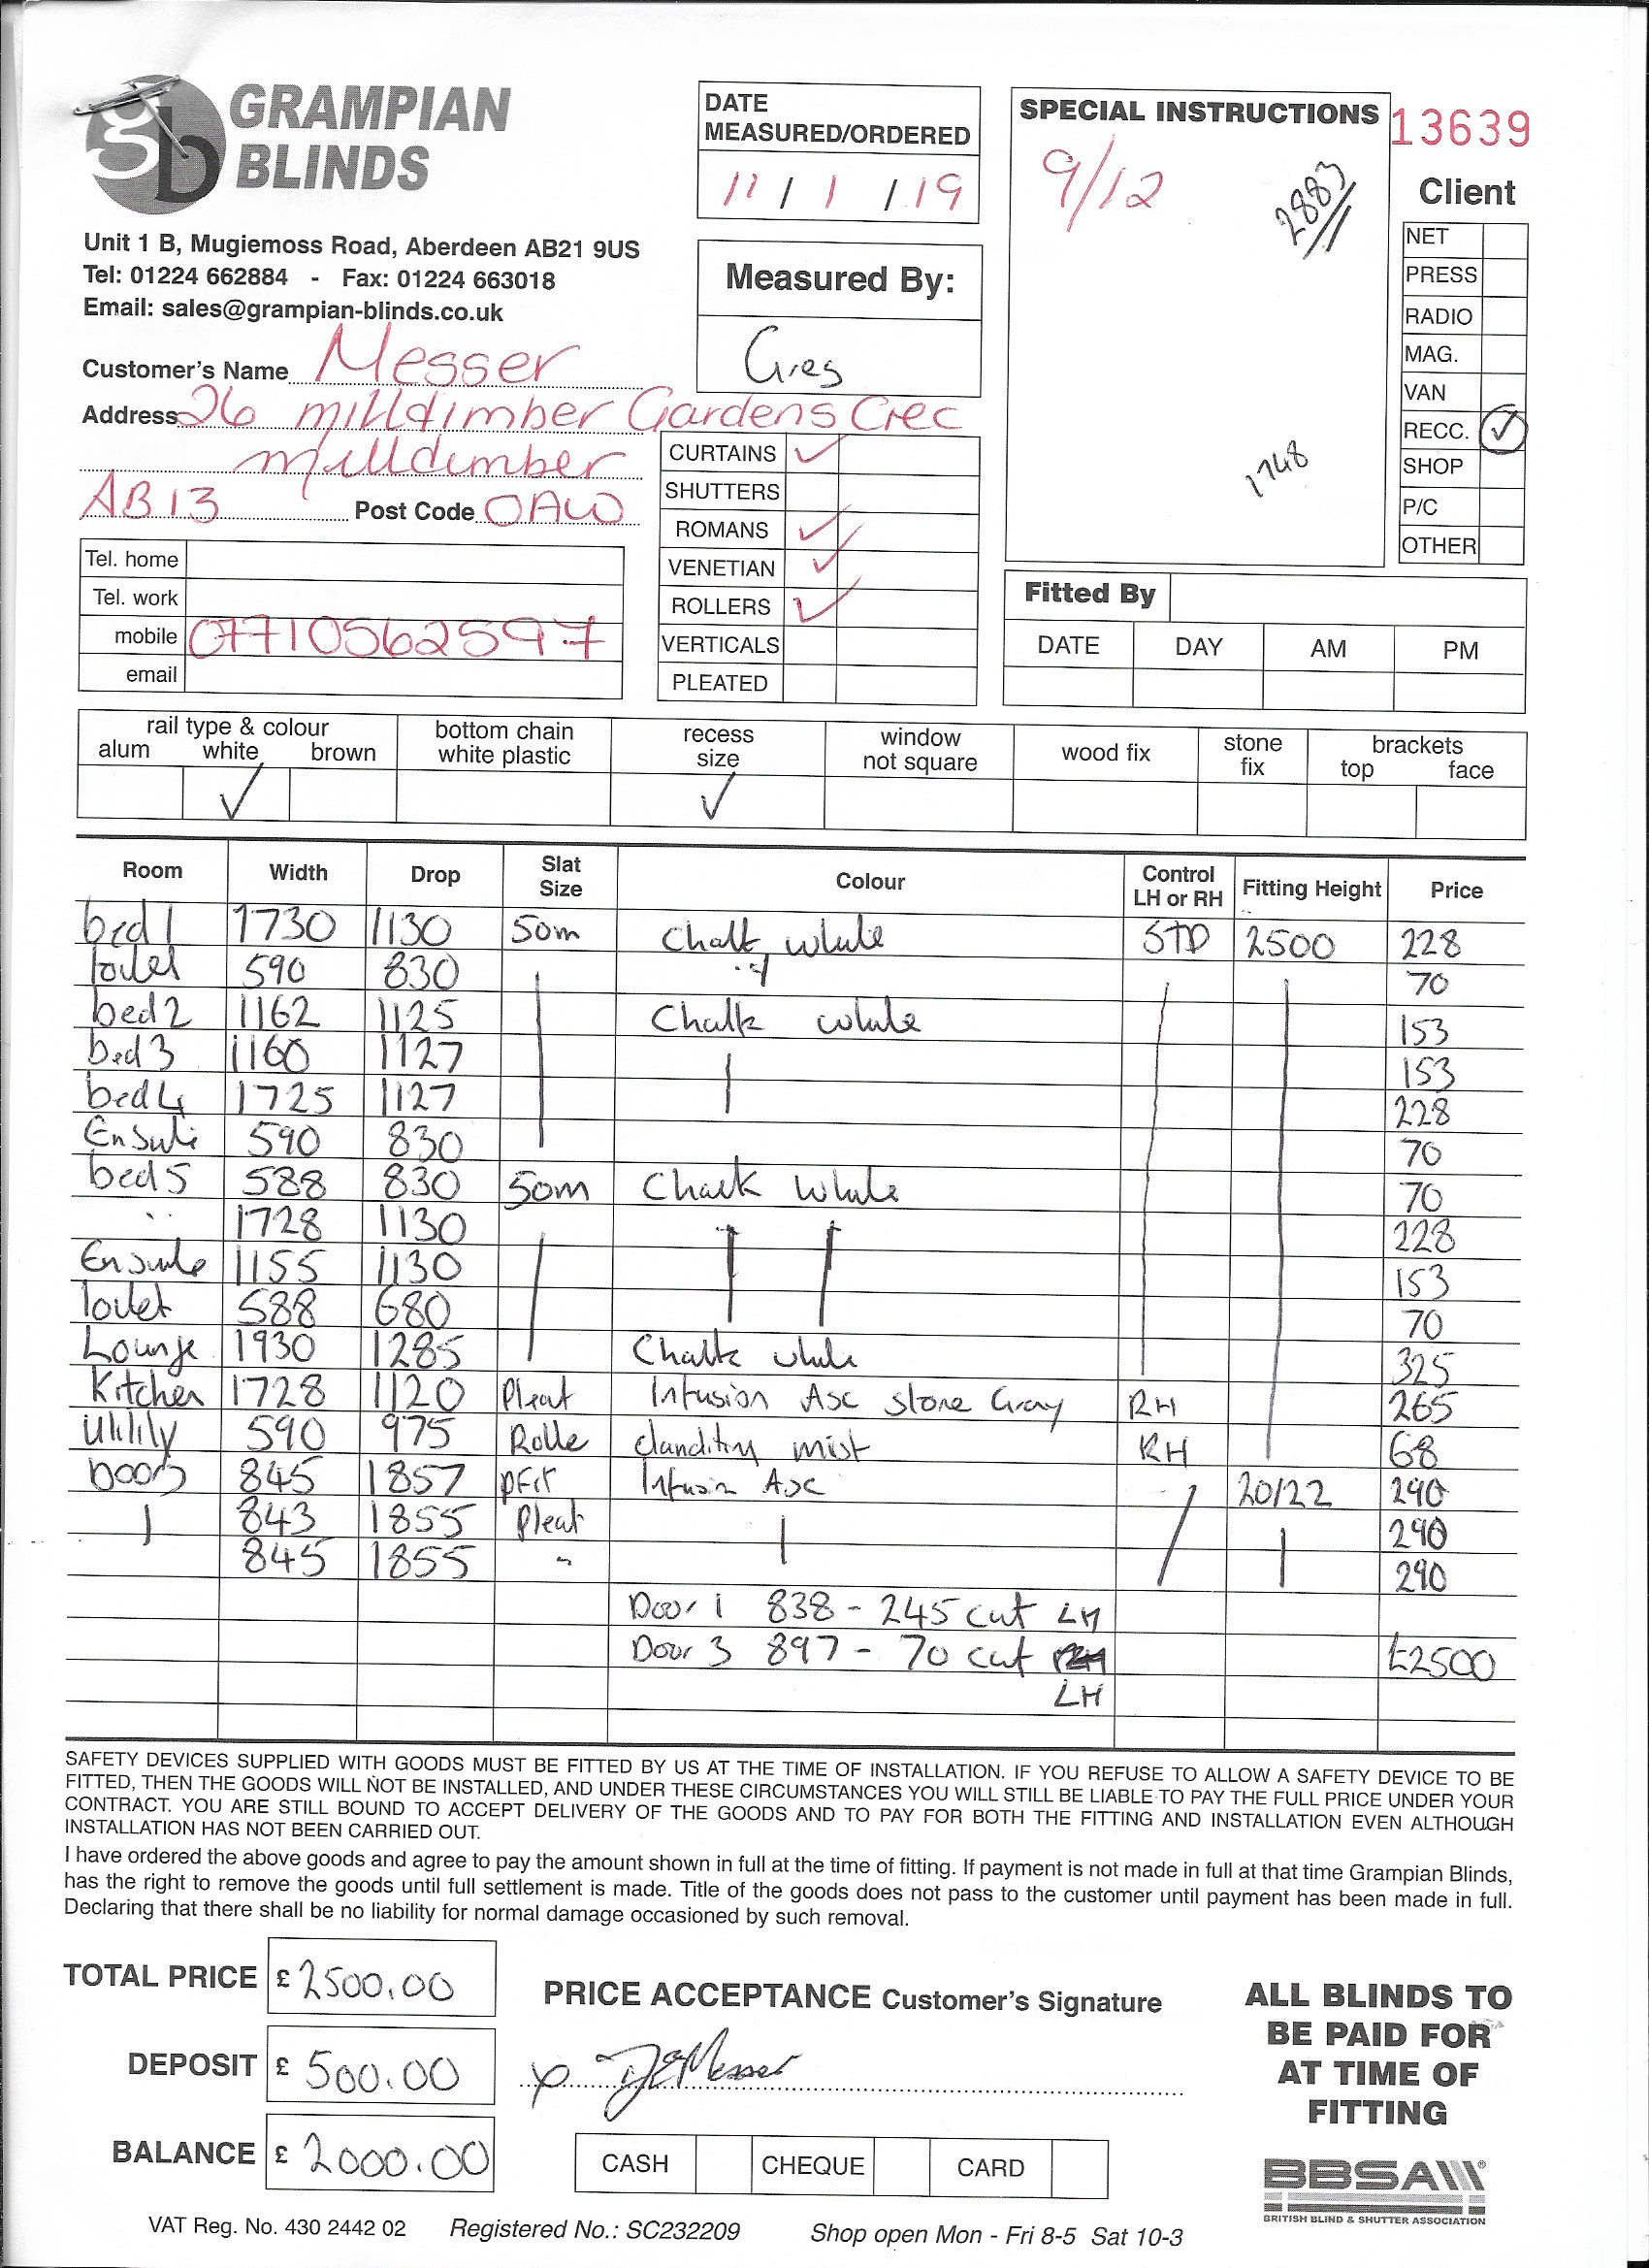 GRAMPIAN
BLINDS
gb
Unit 1 B, Mugiemoss Road, Aberdeen AB21 9US
Tel: 01224 662884 - Fax: 01224 663018
Email: sales@grampian-blinds.co.uk
DATE
MEASURED/ORDERED
11 / 1 / 19
Measured By:
Greg
SPECIAL INSTRUCTIONS
9/12
2883
1748
13639
Client
NET
PRESS
RADIO
MAG.
VAN
RECC. ✓
SHOP
P/C
OTHER
Customer's Name Messer
Address 26 milldimber Gardens Crec
milldimber
AB13 Post Code 0AW
Tel. home
Tel. work
mobile 07710562597
email
CURTAINS ✓
SHUTTERS
ROMANS ✓
VENETIAN ✓
ROLLERS ✓
VERTICALS
PLEATED
Fitted By
DATE DAY AM PM
rail type & colour
alum white brown
✓
bottom chain
white plastic
recess
size
✓
window
not square
wood fix
stone
fix
brackets
top face
Room Width Drop Slat Size Colour Control LH or RH Fitting Height Price
bed 1 1730 1130 50m Chalk white STD 2500 228
toilet 590 830 70
bed 2 1162 1125 Chalk white 153
bed 3 1160 1127 153
bed 4 1725 1127 228
Ensuite 590 830 70
bed 5 588 830 50m Chalk White 70
" 1728 1130 228
Ensuite 1155 1130 153
Toilet 588 680 70
Lounge 1930 1285 Chalk white 325
Kitchen 1728 1120 Pleat Infusion Asc stone Gray RH 265
Utility 590 975 Rolle mist RH 68
Doors 845 1857 pFit Infusion Asc 20/22 290
843 1855 Pleat 290
845 1855 " 290
Door 1 838 - 245 cut LH
Door 3 897 - 70 cut £2500
LH
SAFETY DEVICES SUPPLIED WITH GOODS MUST BE FITTED BY US AT THE TIME OF INSTALLATION. IF YOU REFUSE TO ALLOW A SAFETY DEVICE TO BE
FITTED, THEN THE GOODS WILL NOT BE INSTALLED, AND UNDER THESE CIRCUMSTANCES YOU WILL STILL BE LIABLE TO PAY THE FULL PRICE UNDER YOUR
CONTRACT. YOU ARE STILL BOUND TO ACCEPT DELIVERY OF THE GOODS AND TO PAY FOR BOTH THE FITTING AND INSTALLATION EVEN ALTHOUGH
INSTALLATION HAS NOT BEEN CARRIED OUT.
I have ordered the above goods and agree to pay the amount shown in full at the time of fitting. If payment is not made in full at that time Grampian Blinds,
has the right to remove the goods until full settlement is made. Title of the goods does not pass to the customer until payment has been made in full.
Declaring that there shall be no liability for normal damage occasioned by such removal.
TOTAL PRICE £ 2500.00
DEPOSIT £ 500.00
BALANCE £ 2000.00
PRICE ACCEPTANCE Customer's Signature
x Messer
CASH CHEQUE CARD
ALL BLINDS TO
BE PAID FOR
AT TIME OF
FITTING
BBSA
BRITISH BLIND & SHUTTER ASSOCIATION
VAT Reg. No. 430 2442 02 Registered No.: SC232209 Shop open Mon - Fri 8-5 Sat 10-3